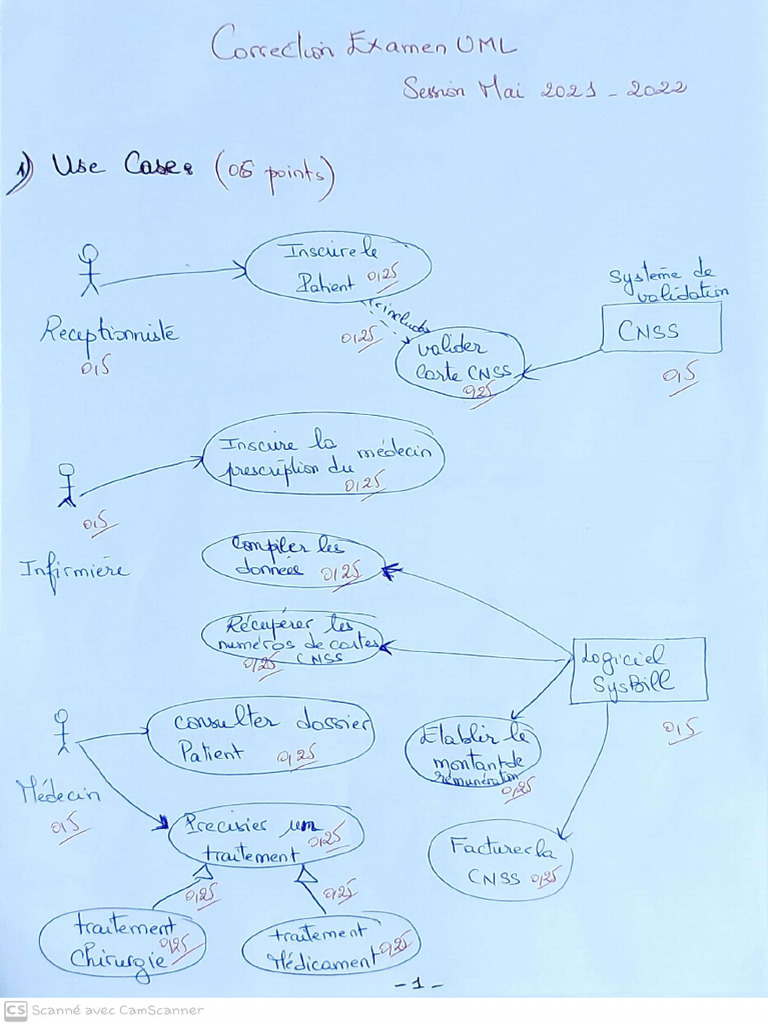 Correction Examen UML
Session Mai 2021 - 2022
1) Use Cases (06 points)
Inscrire le
Patient 0,25
Receptionniste
0,5
<<include>>
0,25
valider
carte CNSS
0,25
Système de
validation
CNSS
0,5
Inscrire la
prescription du médecin
0,25
0,5
Infirmière
Compiler les
données 0,25
Récupérer les
numéros de cartes
0,25 CNSS
Logiciel
SysBill
0,5
consulter dossier
Patient 0,25
Médecin
0,5
Etablir le
montant de
rémunération
0,25
Precisier un
traitement 0,25
Facturer la
CNSS 0,25
0,25
0,25
traitement
Chirurgie 0,25
traitement
Médicament 0,25
- 1 -
CS Scanné avec CamScanner